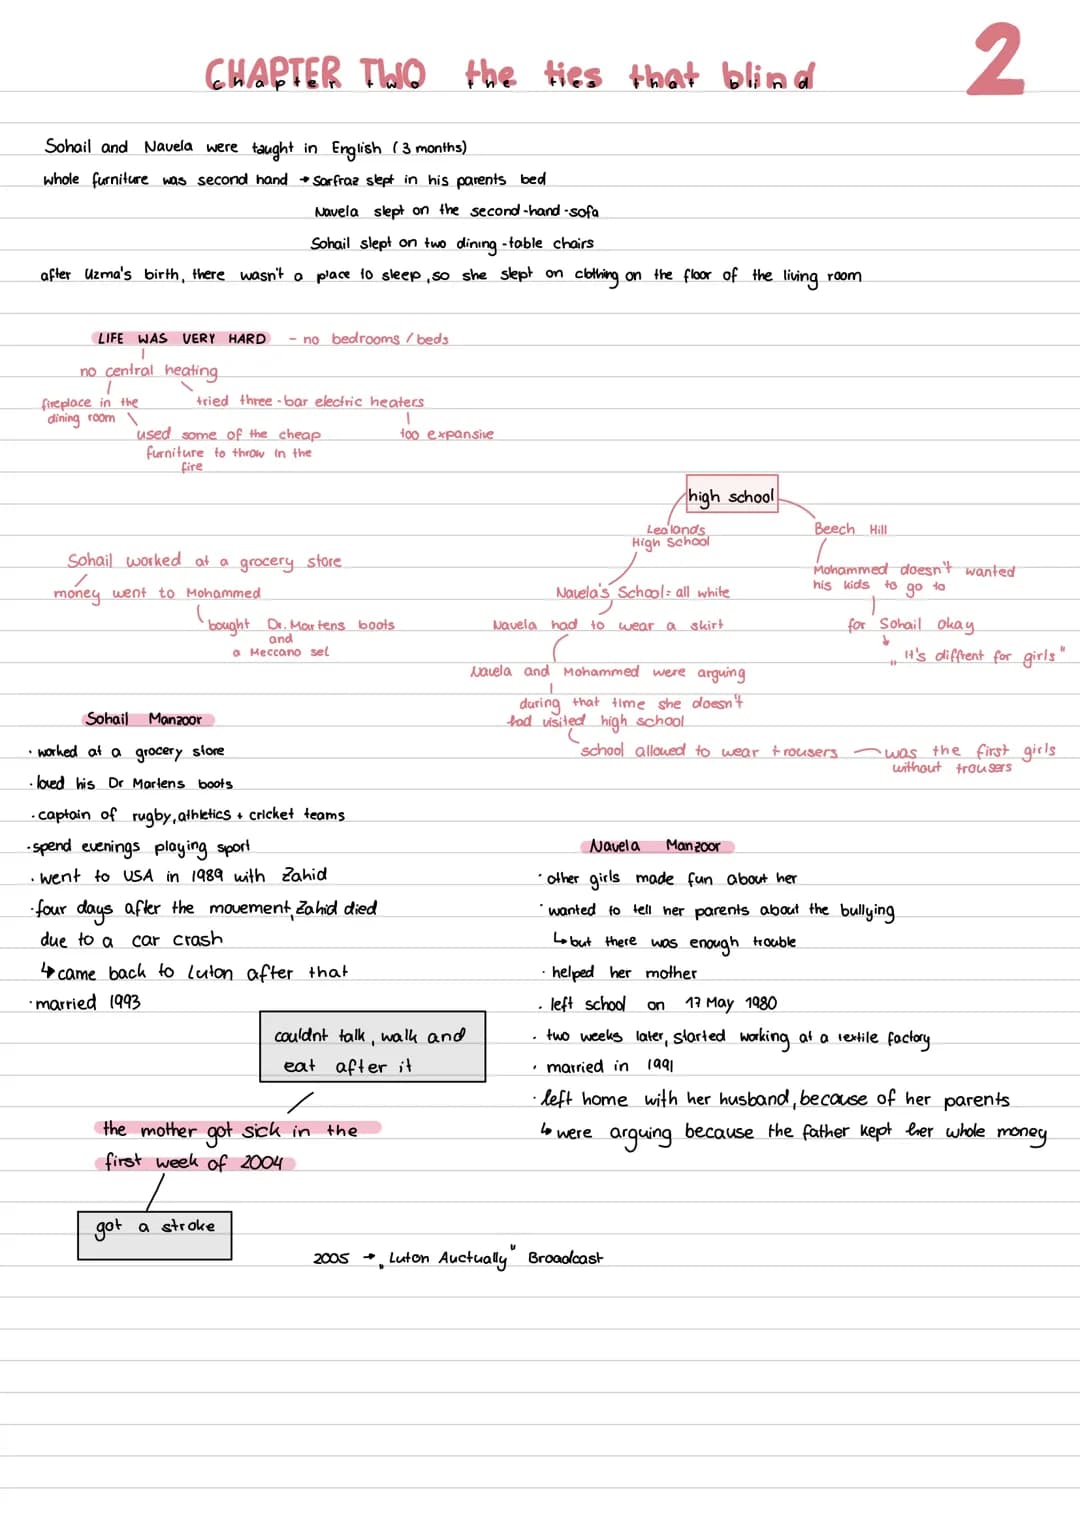 2
CHAPTER TWO the ties that blind
chapter two the ties that blind
Sohail and Navela were taught in English (3 months)
whole furniture was second hand → Sarfraz slept in his parents bed
Navela slept on the second-hand-sofa
Sohail slept on two dining-table chairs
after Uzma's birth, there wasn't a place to sleep, so she slept on clothing on the floor of the living room
LIFE WAS VERY HARD - no bedrooms / beds
no central heating
fireplace in the
dining room
tried three-bar electric heaters
used some of the cheap
furniture to throw in the
fire
too expansive
high school
Lealands
High School
Beech Hill
Mohammed doesn't wanted
his kids to go to
Navela's School: all white
for Sohail okay
Navela had to wear a skirt
„It's diffrent for girls"
Navela and Mohammed were arguing
during that time she doesn't
had visited high school
school allowed to wear trousers
was the first girls
without trousers
Sohail worked at a grocery store
money went to Mohammed
bought Dr. Martens boots
and
a Meccano set
Sohail Manzoor
· worked at a grocery store
· loved his Dr Martens boots
· captain of rugby, athletics + cricket teams
· spend evenings playing sport
· went to USA in 1989 with Zahid
· four days after the movement, Zahid died
due to a car crash
↳ came back to Luton after that
· married 1993
Navela Manzoor
· other girls made fun about her
· wanted to tell her parents about the bullying
↳ but there was enough trouble
· helped her mother
· left school on 17 May 1980
· two weeks later, started working at a textile factory
· married in 1991
· left home with her husband, because of her parents
↳ were arguing because the father kept her whole money
couldnt talk, walk and
eat after it
the mother got sick in the
first week of 2004
got a stroke
2005 → „Luton Auctually" Broadcast